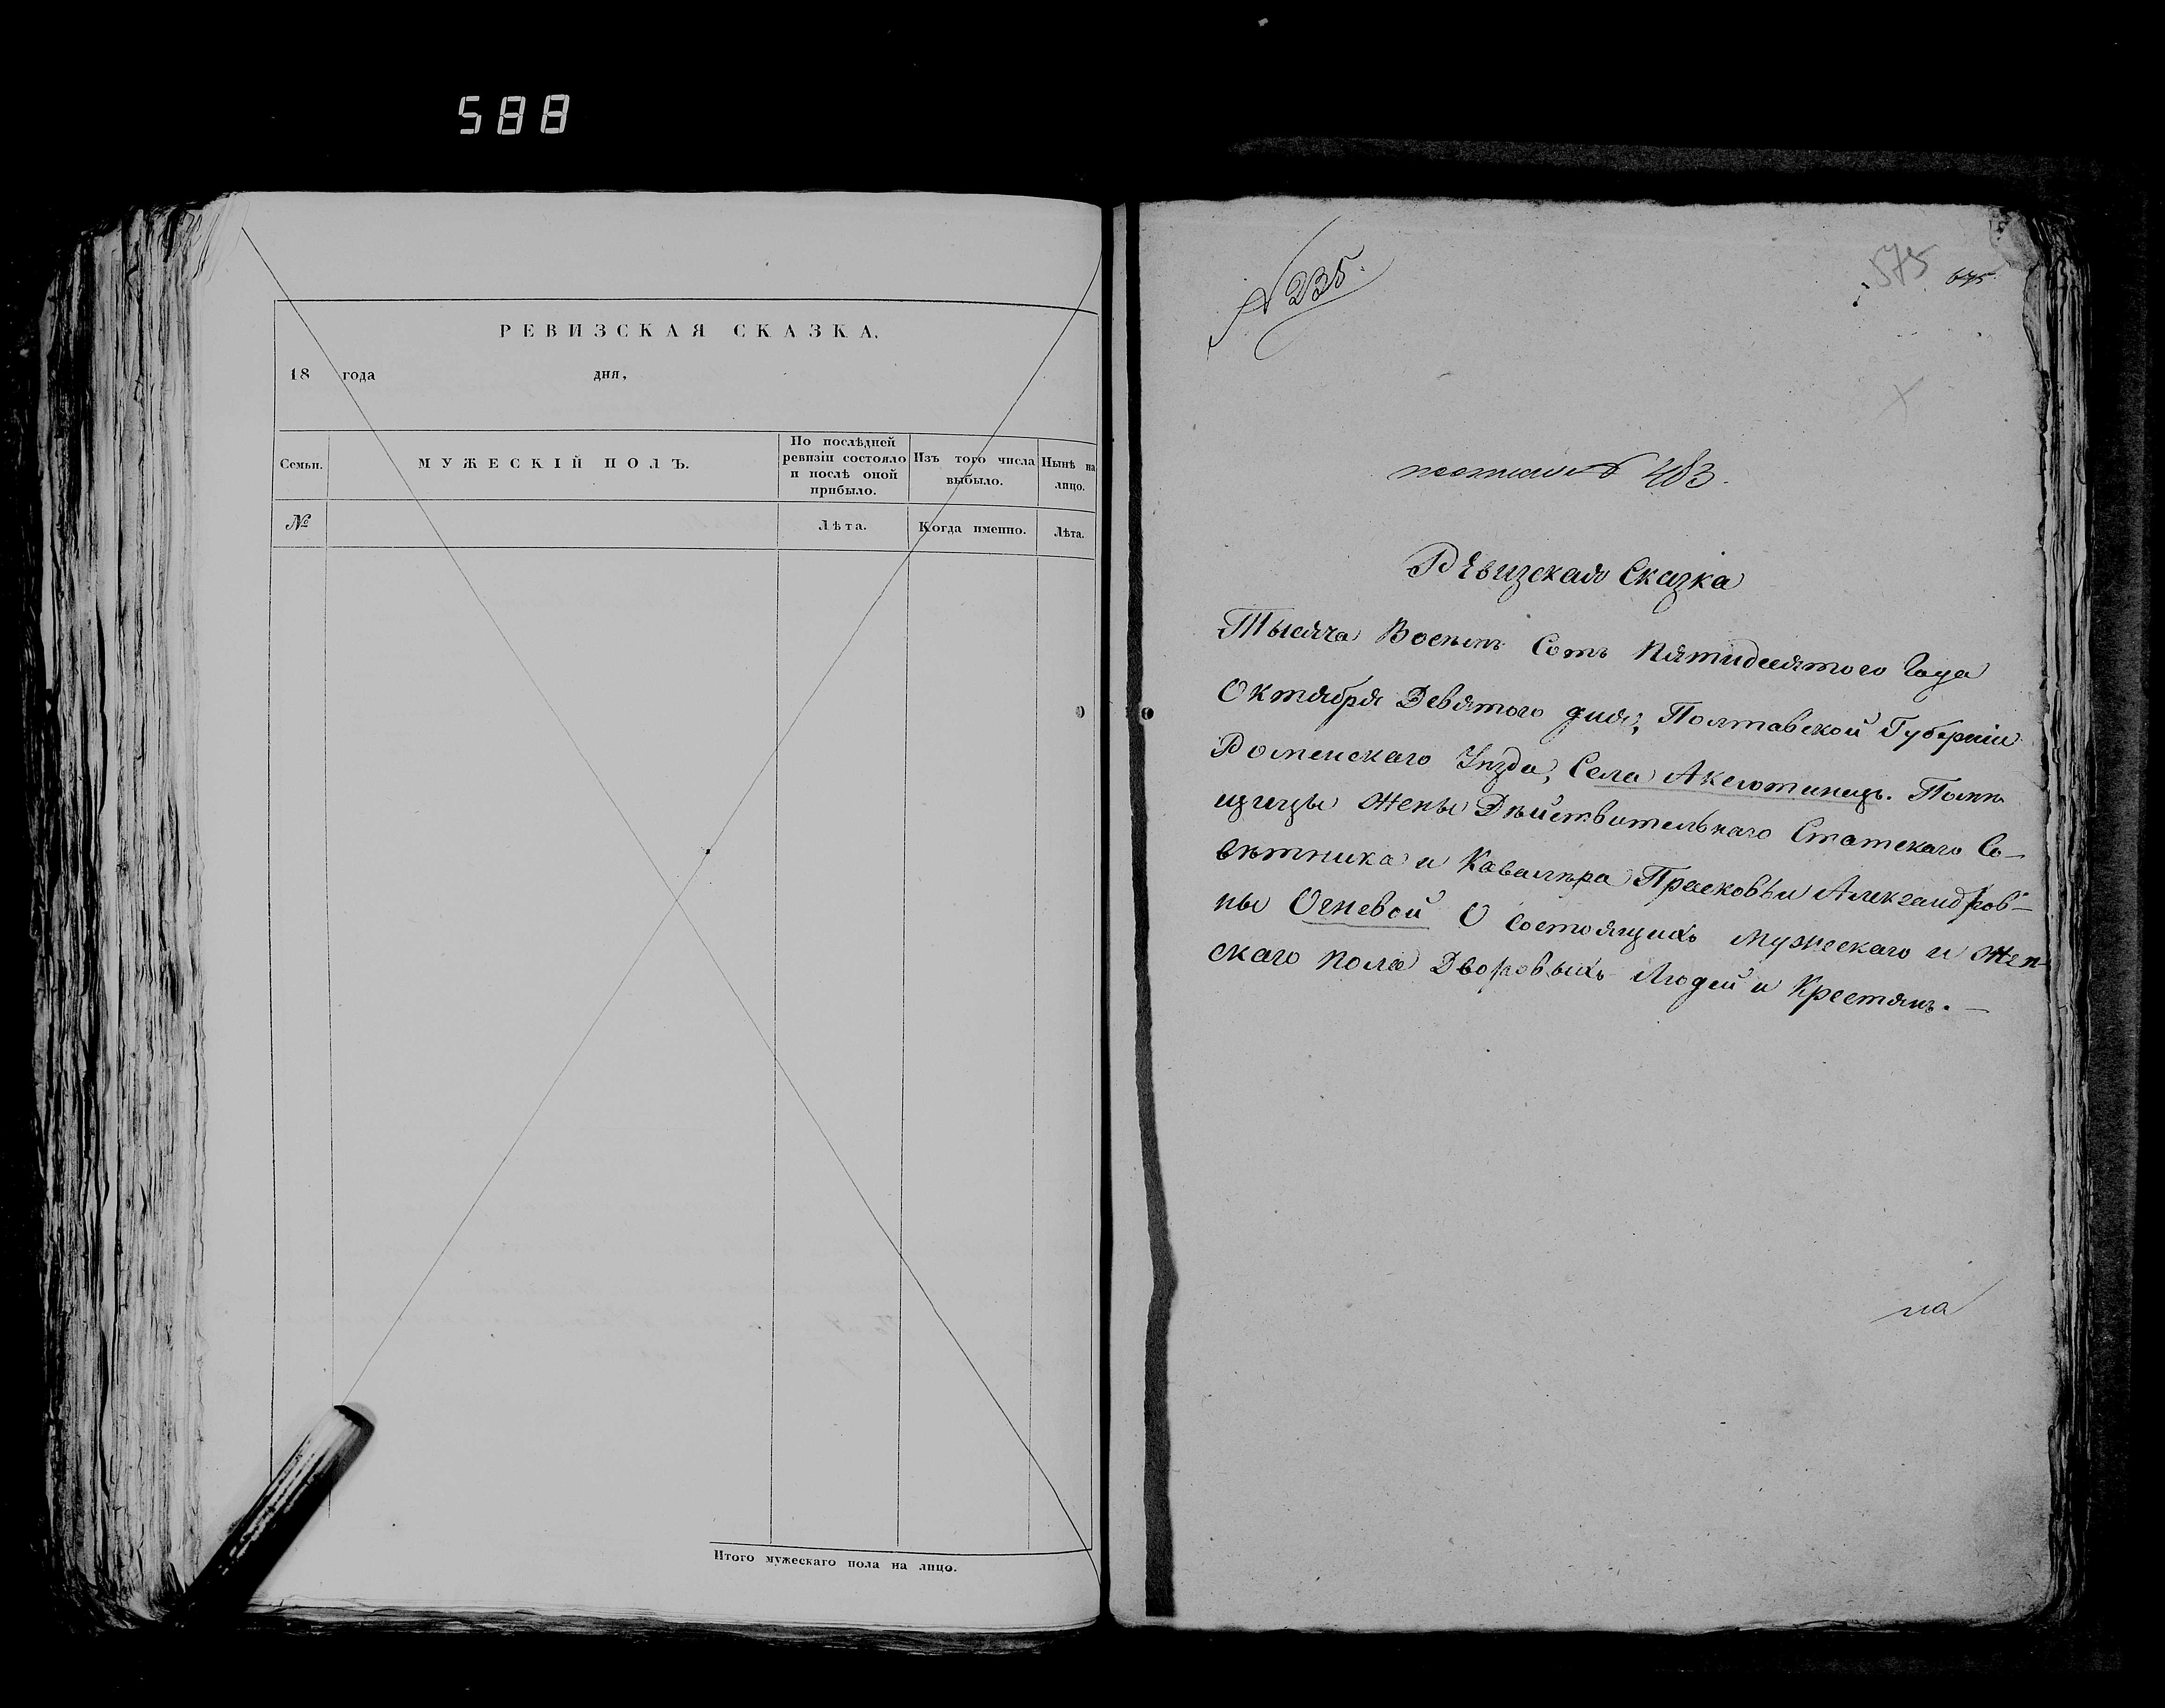 588
РЕВИЗСКАЯ СКАЗКА.
18 года дня,
Семьи.
МУЖЕСКІЙ ПОЛЪ.
По послѣдней
ревизіи состояло
и послѣ оной
прибыло.
Изъ того числа
выбыло.
Нынѣ на
лицо.
№
Лѣта.
Когда именно.
Лѣта.
Итого мужескаго пола на лицо.
№ 235.
575
675
483.
Рѣвизская Сказка
Тысяча Восемъ Сотъ Пятидесятого Года
Октября Девятого дня, Полтавской Губерніи
Роменскаго Уѣзда, Села Аксютинецъ. Помѣ
щицы Жены Дѣйствительнаго Статскаго Со-
вѣтника и Кавалѣра Прасковьи Александров-
ны Огневой О Состоящихъ Мужескаго и Жен-
скаго пола Дворовыхъ Людей и Крестянъ. -
на